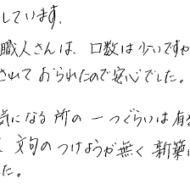 しています.
職人さんは、口数は少いですが
されて おられたので安心でした。
気になる 所の 一つぐらいは有る
文句の つけようが無く 新築に
た。